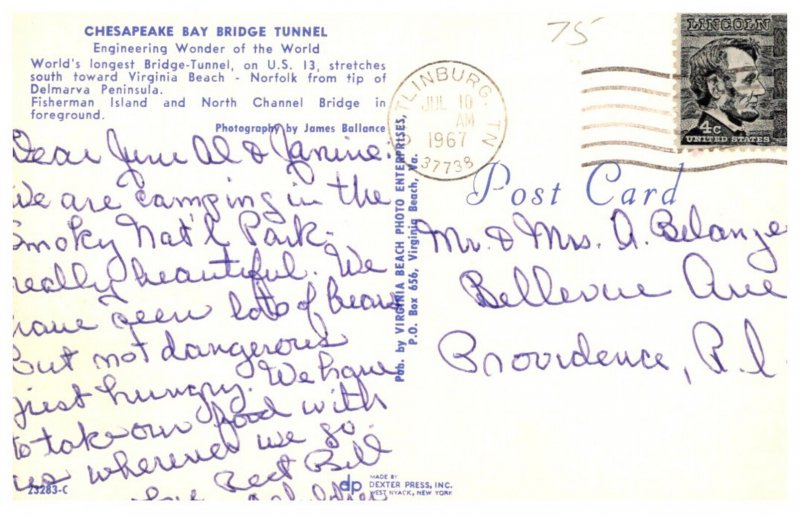 CHESAPEAKE BAY BRIDGE TUNNEL
Engineering Wonder of the World
World's longest Bridge-Tunnel, on U.S. 13, stretches
south toward Virginia Beach - Norfolk from tip of
Delmarva Peninsula.
Fisherman Island and North Channel Bridge in
foreground.
Photography by James Ballance
Dear June Al & Janine:
We are camping in the
Smoky Nat'l Park.
really beautiful. We
have seen lots of bears
But not dangerous
just hungry. We have
to take our food with
us wherever we go.
Bill
23283-C
Pub. by VIRGINIA BEACH PHOTO ENTERPRISES,
P.O. Box 656, Virginia Beach, Va.
dp
MADE BY
DEXTER PRESS, INC.
WEST NYACK, NEW YORK
75
TLINBURG, TN
JUL 10
AM
1967
37738
LINCOLN
4c
UNITED STATES
Post Card
Mr. & Mrs. A. Belange
Bellevue Ave
Providence, R.I.